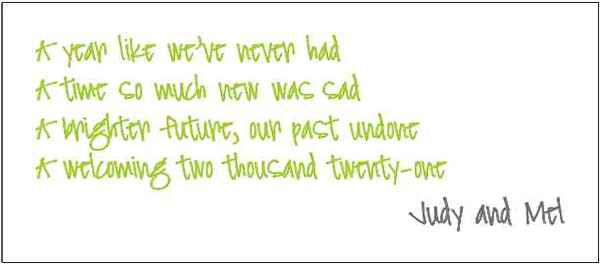 A year like we've never had
A time so much new was sad
A brighter future, our past undone
A welcoming two thousand twenty-one
Judy and Mel